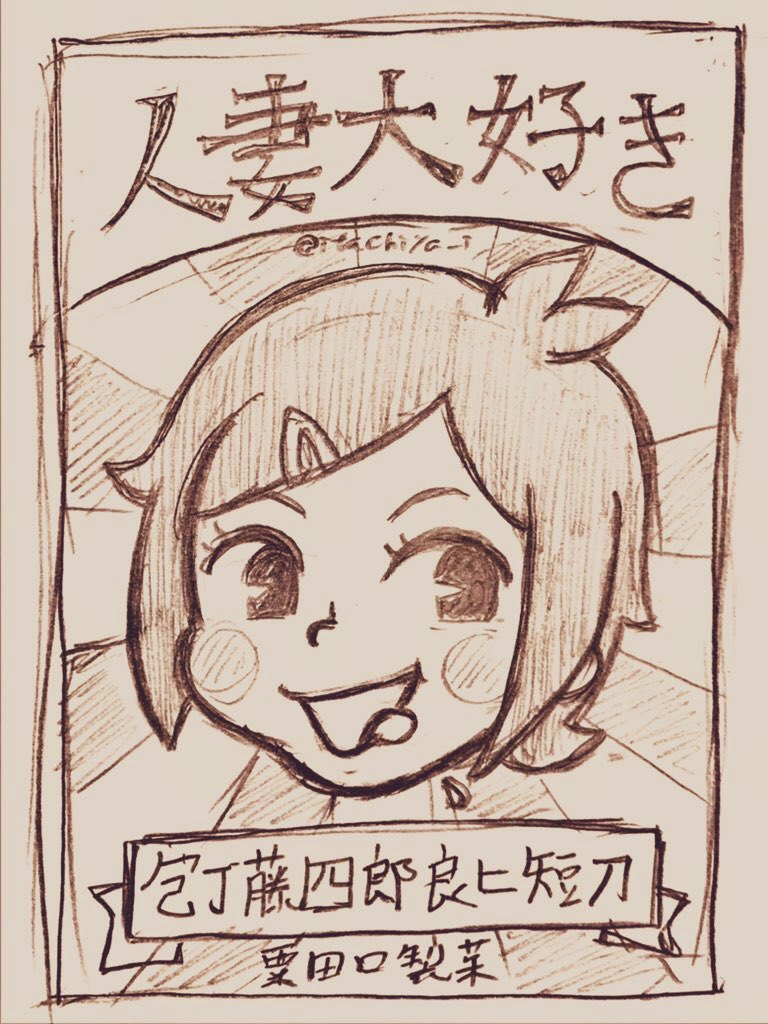 人妻大好き
@machiya_i
包丁藤四郎良ヒ短刀
粟田口製菓